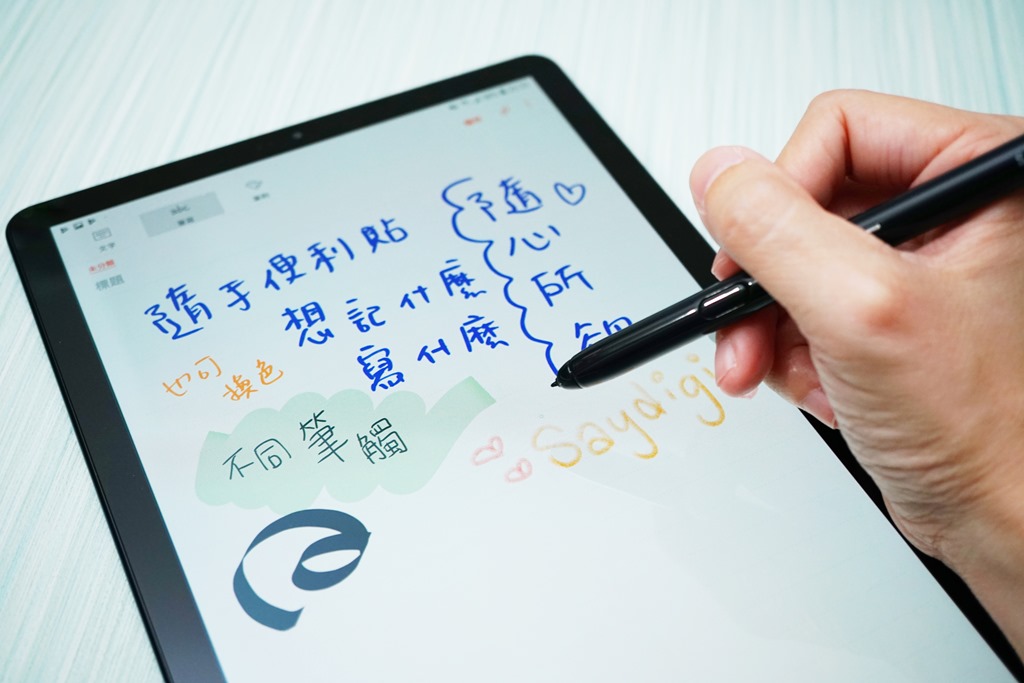 文字
未分類
標題
隨手便利貼
想記什麼
寫什麼
隨
心
所
也可
換色
不同筆觸
Saydigi